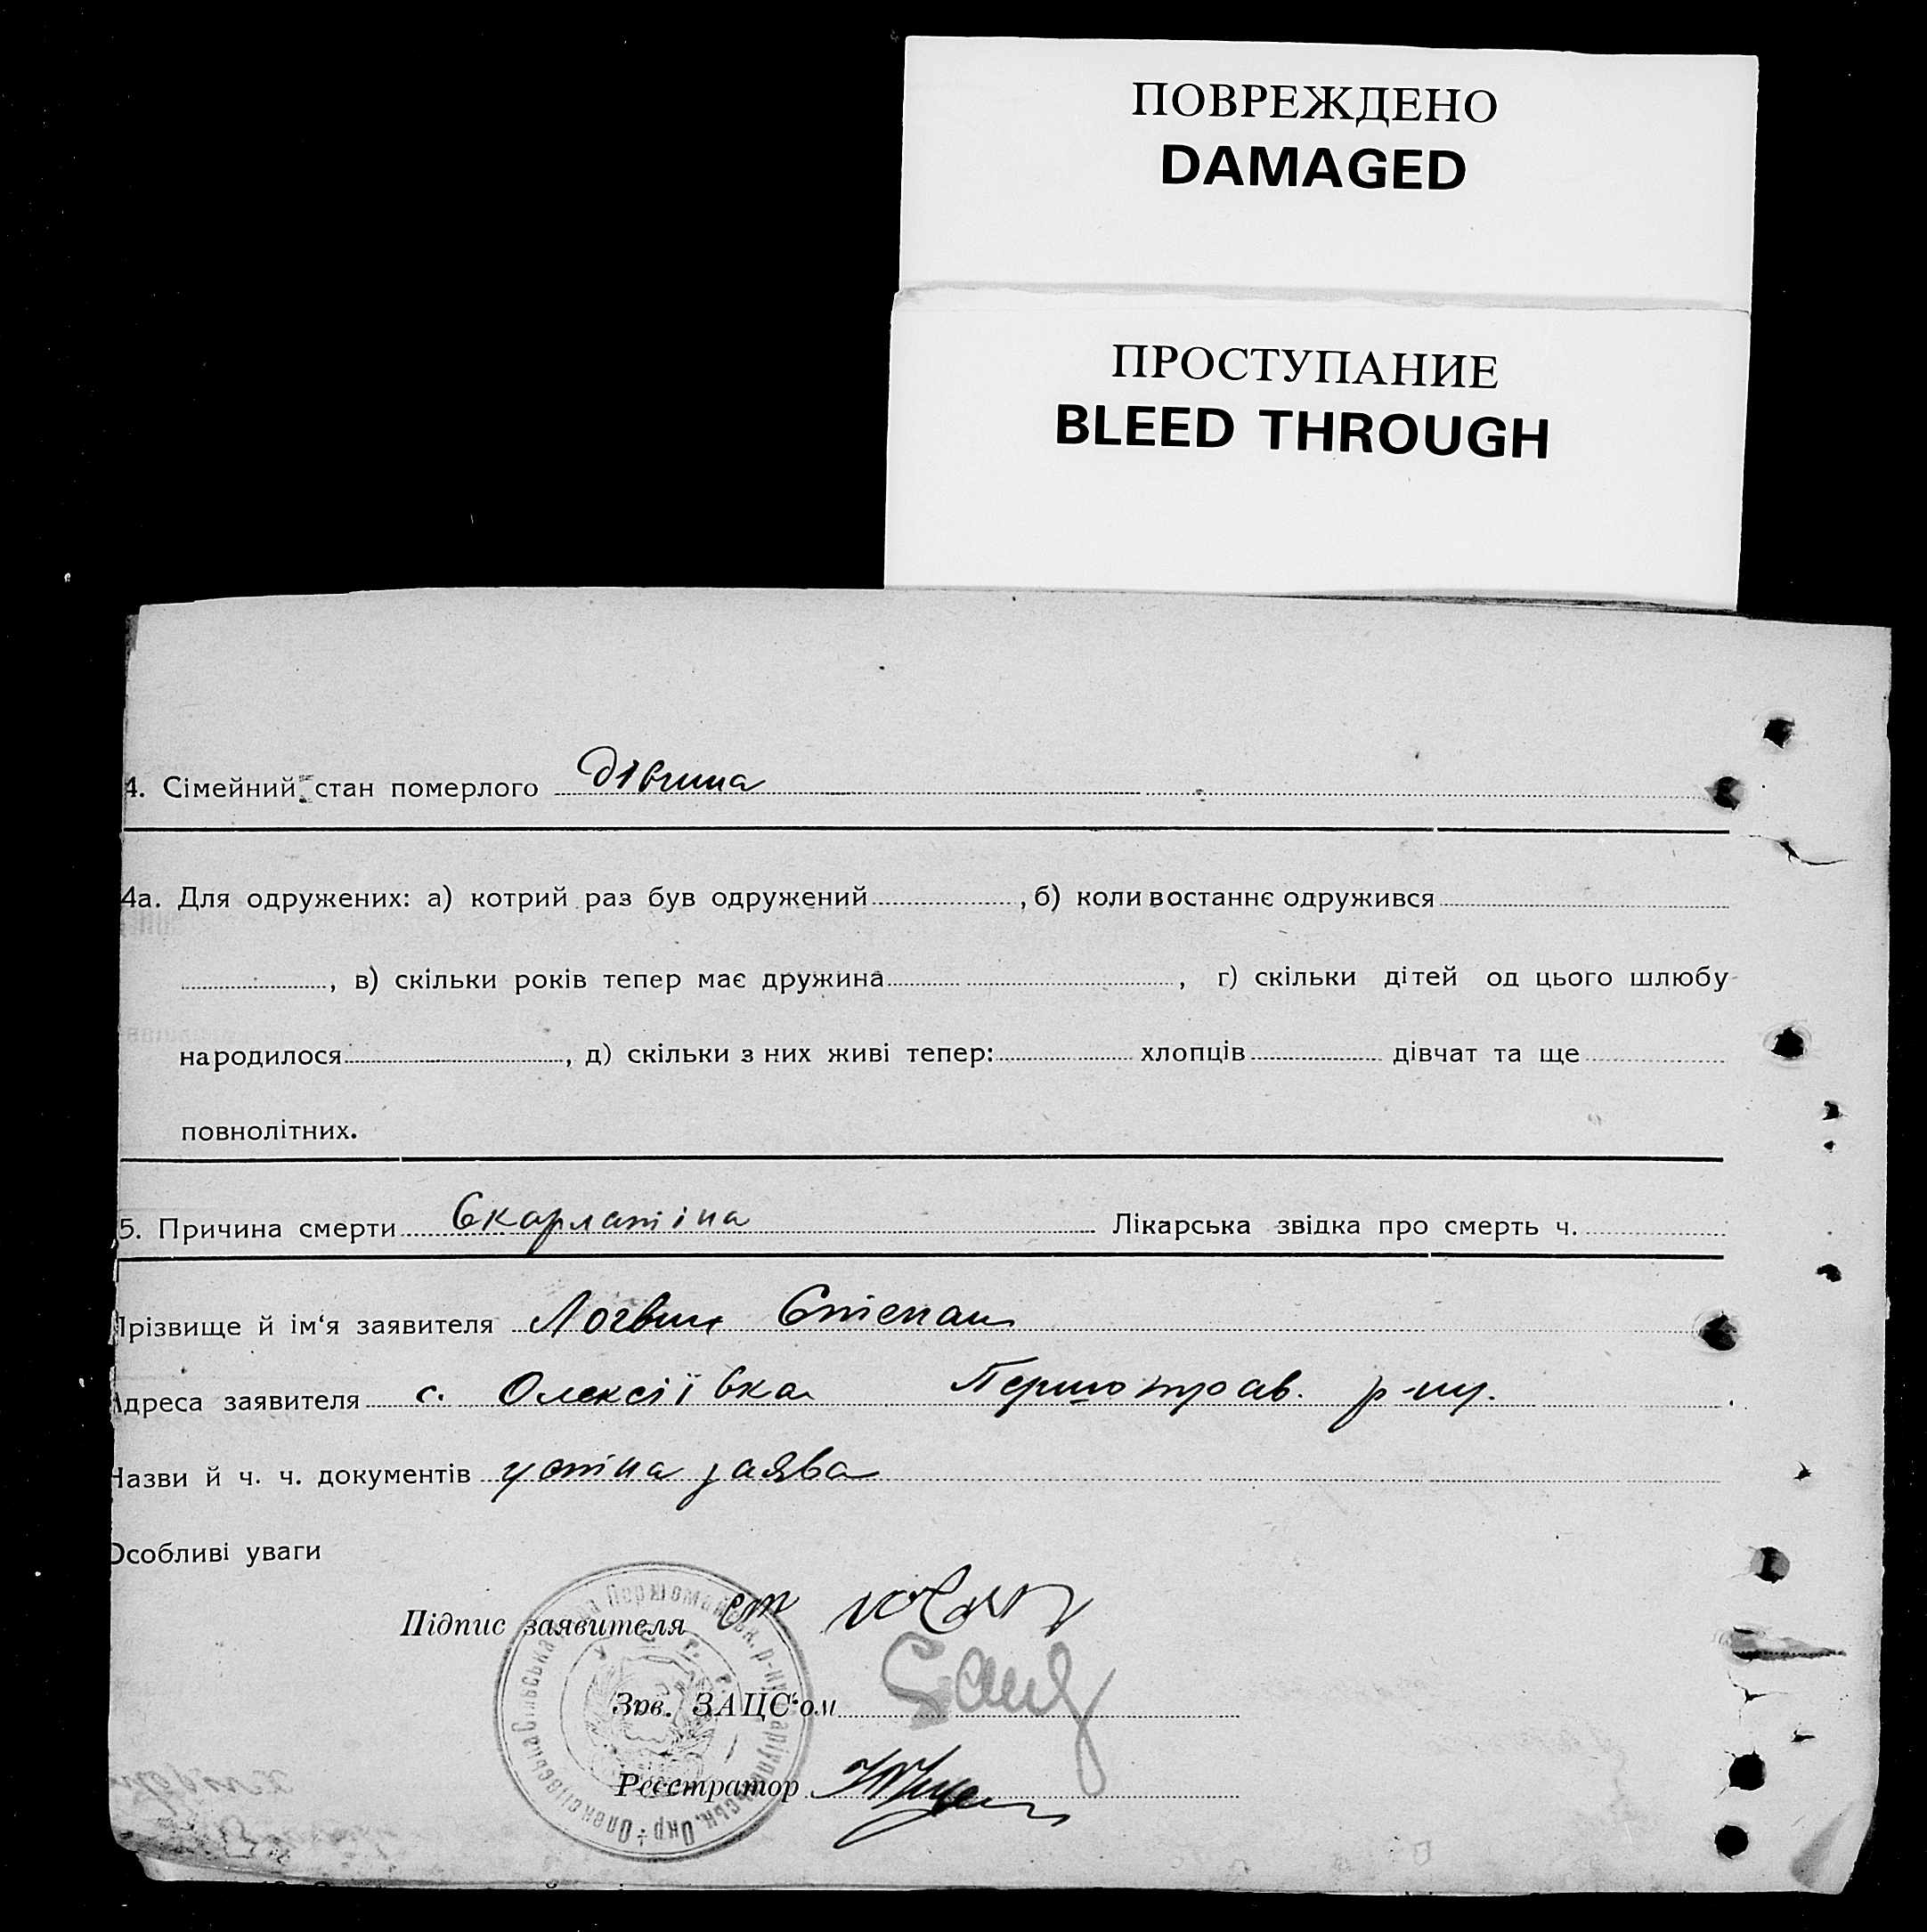 ПОВРЕЖДЕНО
DAMAGED
ПРОСТУПАНИЕ
BLEED THROUGH
4. Сімейний стан померлого дівчина
4а. Для одружених: а) котрий раз був одружений , б) коли востаннє одружився
, в) скільки років тепер має дружина , г) скільки дітей од цього шлюбу
народилося , д) скільки з них живі тепер: хлопців дівчат та ще
повнолітних.
5. Причина смерти Скарлатіна Лікарська звідка про смерть ч.
Прізвище й ім'я заявителя Логвин Степан
Адреса заявителя с. Олексіївка Першотрав. р-ну.
Назви й ч. ч. документів устна заява
Особливі уваги
Підпис заявителя
Зав. ЗАЦС'ом
Реєстратор